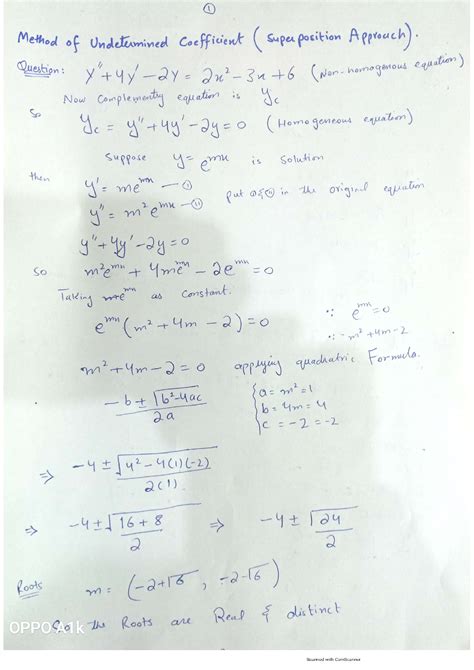 ①
Method of Undetermined Coefficient (Superposition Approach).
Question: y'' + 4y' - 2y = 2x² - 3x + 6 (Non-homogenous equation)
Now Complementry equation is y_c
So
y_c = y'' + 4y' - 2y = 0 (Homogeneous equation)
Suppose y = e^{mx} is solution
then
y' = me^{mx} —① put ①&② in the original equation
y'' = m²e^{mx} —②
y'' + 4y' - 2y = 0
So m²e^{mx} + 4me^{mx} - 2e^{mx} = 0
Taking e^{mx} as constant.
e^{mx}(m² + 4m - 2) = 0 ∵ e^{mx} = 0
∵ -m² + 4m - 2
m² + 4m - 2 = 0 applying quadratic Formula.
-b ± √b² - 4ac / 2a { a = m² = 1
b = 4m = 4
c = -2 = -2
⇒ -4 ± √4² - 4(1)(-2) / 2(1)
⇒ -4 ± √16 + 8 / 2 ⇒ -4 ± √24 / 2
Roots m = (-2+√6 , -2-√6)
So the Roots are Real & distinct
OPPO A1k
Scanned with CamScanner